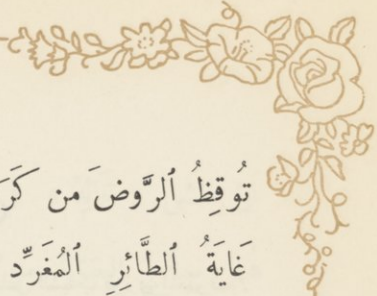 تُوقِظُ ٱلرَّوضَ من
غَايَةُ ٱلطَّائِرِ ٱلمُغَرِّدِ